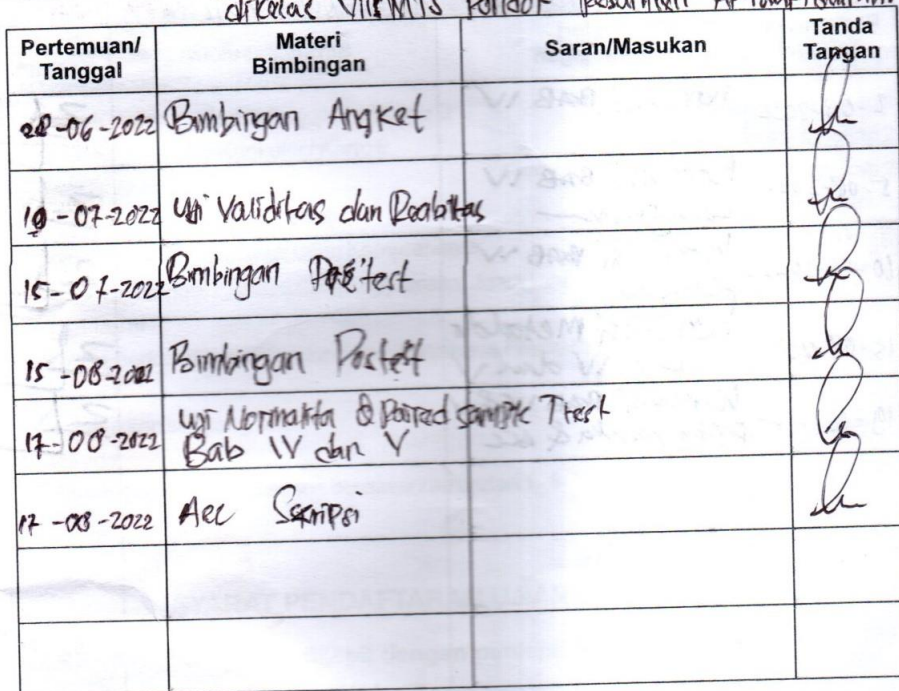 dikelas VIII MTS Pondok Pesantren
Pertemuan/
Tanggal
Materi
Bimbingan
Saran/Masukan
Tanda
Tangan
28-06-2022 Bimbingan Angket
19-07-2022 Uji Validitas dan Realibitas
15-07-2022 Bimbingan Pretest
15-08-2022 Bimbingan Postest
17-08-2022 Uji Normalita & Paired sample Ttest
Bab IV dan V
17-08-2022 Acc Skripsi